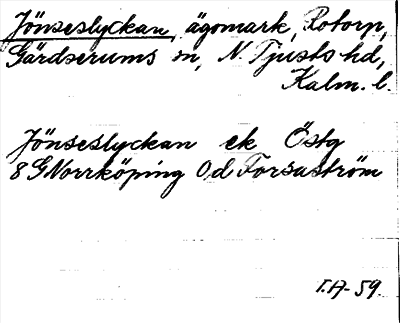 Jönseslyckan, ägomark, Rotorp,
Gärdserums sn, N. Tjusts hd,
Kalm. l.
Jönseslyckan ek Östg
8 G Norrköping 0d Forsaström
T.A-59.